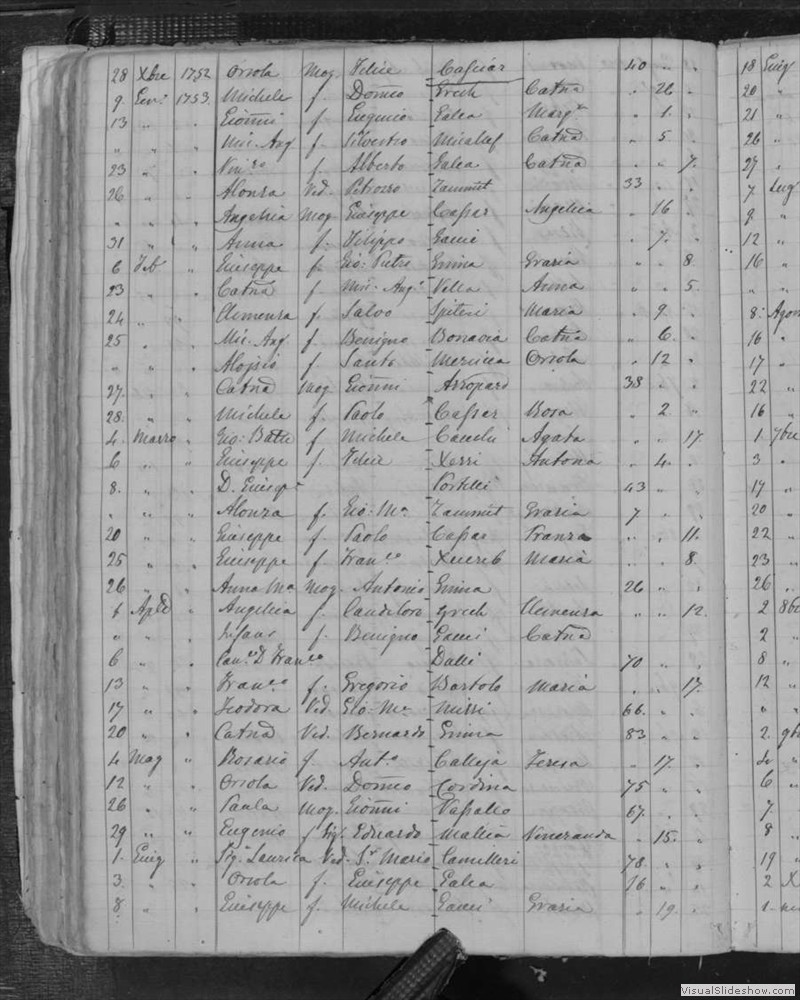 28 Xbre 1752 Orsola Mog. Felice Cassar 40 " "
9 Gen. 1753 Michele f. Domco Grech Catna " 26 "
13 " " Gionni f. Eugenio Galea Marga " 1 "
" " " Mic. Ang f. Silvestro Micalef Catna " 5 "
23 " " f. Alberto Galea Catna " " 7
26 " " Alonsa Ved. Zammit 33 " "
" " " Angelica Mog Giuseppe Cassar Angelica " 16 "
31 " " Anna f. Filippo Gauci " 7 "
6 Feb " Giuseppe f. Gio: Pietro Grazia " " 8
23 " " Catna f. Mic. Ang. Vella Anna " " 5
24 " " Clemensa f. Salvo Spiteri Maria " 9 "
25 " " Mic. Ang f. Benigno Bonavia Catna " 6 "
" " " Aloisio f. Santo Mercieca Orsola " 12 "
27 " " Catna Mog Gionni 38 " "
28 " " Michele f. Paolo Cassar Rosa " 2 "
4 Marzo " Gio: Batte f. Michele Cauchi Agata " " 17
6 " " Giuseppe f. Felice Xerri Antona " 4 "
8 " " D. Giusepe Portelli 43 " "
" " " Alonza f. Gio: Ma Zammit Grazia 7 " "
20 " " Giuseppe f. Paolo Cassar Franza " " 11
25 " " Giuseppe f. Franco Xuereb Maria " " 8
26 " " Anna Ma Mog. Antonio 26 " "
Aple " Angelica f. Candeloro Grech Clemensa " " 12
" " " f. Benigno Gauci Catna
6 " " Can.co D. Franco 70 " "
13 " " Franco f. Gregorio Bartolo Maria " " 17
17 " " Teodora Ved. Gio: Ma Mizzi 66 " "
20 " " Catna Ved. Bernardo 83 " "
4 Mag " Rosario f. Anto Calleja Teresa " 17 "
12 " " Orsola Ved. Domco Cordina 75 " "
26 " " Paula Mog. Gionni Vassallo 67 " "
29 " " Eugenio f. Sig. Eduardo Mallia Veneranda " 15 "
1 Giug " Sig.a Laurica Ved. Sr Mario Camilleri 78 " "
3 " " Orsola f. Giuseppe Galea 16 " "
8 " " Giuseppe f. Michele Gauci Grazia " 19 "
18 Giug
20 "
21 "
26 "
27 "
7 Lug
9 "
12 "
16 "
" "
8 Agos
16 "
17 "
22 "
16 "
1 7bre
3 "
17 "
20 "
22 "
23 "
26 "
2 8bre
2 "
8 "
12 "
" "
2 9bre
"
6 "
7 "
8 "
19 "
2 X
VisualSlideshow.com